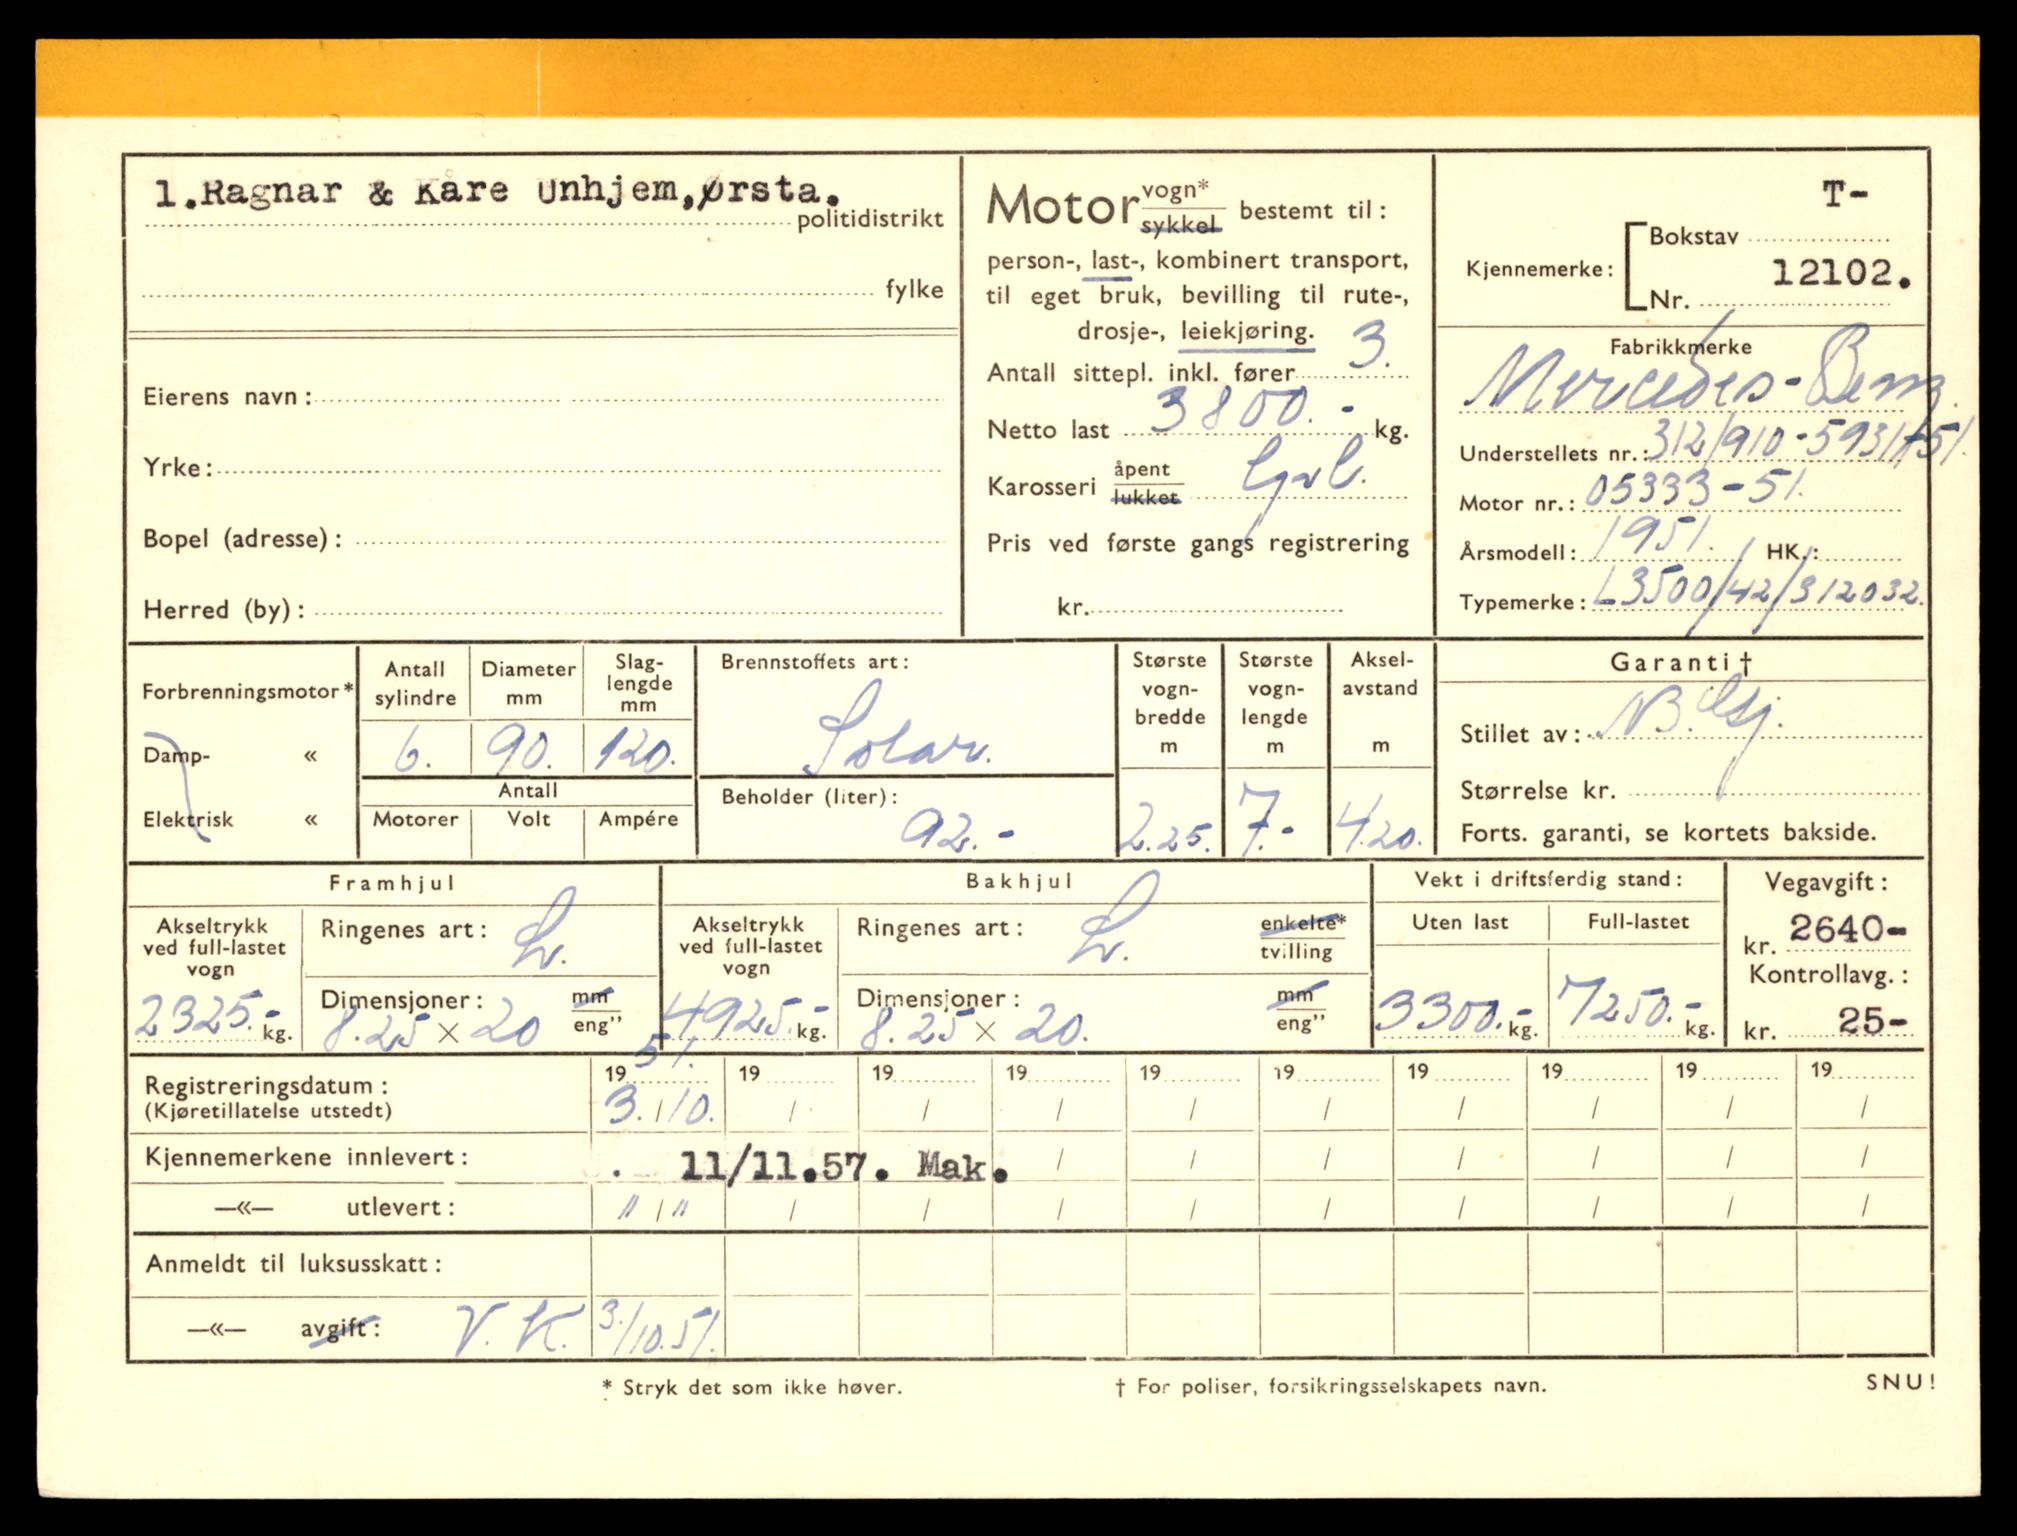 1.Ragnar & Kåre Unhjem,Ørsta.
politidistrikt
fylke
Eierens navn:
Yrke:
Bopel (adresse):
Herred (by):
Motor vogn*
sykkel bestemt til:
person-, last-, kombinert transport,
til eget bruk, bevilling til rute-,
drosje-, leiekjøring.
Antall sittepl. inkl. fører 3.
Netto last 3800.- kg.
Karosseri åpent
lukket
Pris ved første gangs registrering
kr.
T-
Kjennemerke: Bokstav
12102.
Nr.
Fabrikkmerke
Mercedes-Benz.
Understellets nr.: 312/910-5931/51.
Motor nr.: 05333-51.
Årsmodell: 1951. HK.:
Typemerke: L3500/42/312032.
Forbrenningsmotor*
Damp- «
Elektrisk «
Antall sylindre
Diameter mm
Slag-lengde mm
6. 90. 120.
Antall
Motorer Volt Ampére
Brennstoffets art:
Solar.
Beholder (liter):
92.-
Største vogn-bredde m
2.25.
Største vogn-lengde m
7.-
Aksel-avstand m
4.20.
Garanti †
Stillet av:
Størrelse kr.
Forts. garanti, se kortets bakside.
Framhjul
Akseltrykk ved full-lastet vogn
2325.- kg.
Ringenes art: L.
Dimensjoner: mm
eng”
8.25 × 20
Bakhjul
Akseltrykk ved full-lastet vogn
4925.- kg.
Ringenes art: L. enkelte*
tvilling
Dimensjoner: mm
eng”
8.25 × 20.
Vekt i driftsferdig stand:
Uten last Full-lastet
3300.- kg. 7250.- kg.
Vegavgift:
kr. 2640-
Kontrollavg.:
kr. 25-
Registreringsdatum: 19 51. 19 19 19 19 19 19 19 19 19
(Kjøretillatelse utstedt) 3./10. / / / / / / / / /
Kjennemerkene innlevert: . 11/11.57. Mak. / / / / / / /
—«— utlevert: " / " / / / / / / / / /
Anmeldt til luksusskatt:
—«— avgift: V.K. 3./10.51.
* Stryk det som ikke høver.
† For poliser, forsikringsselskapets navn.
SNU!